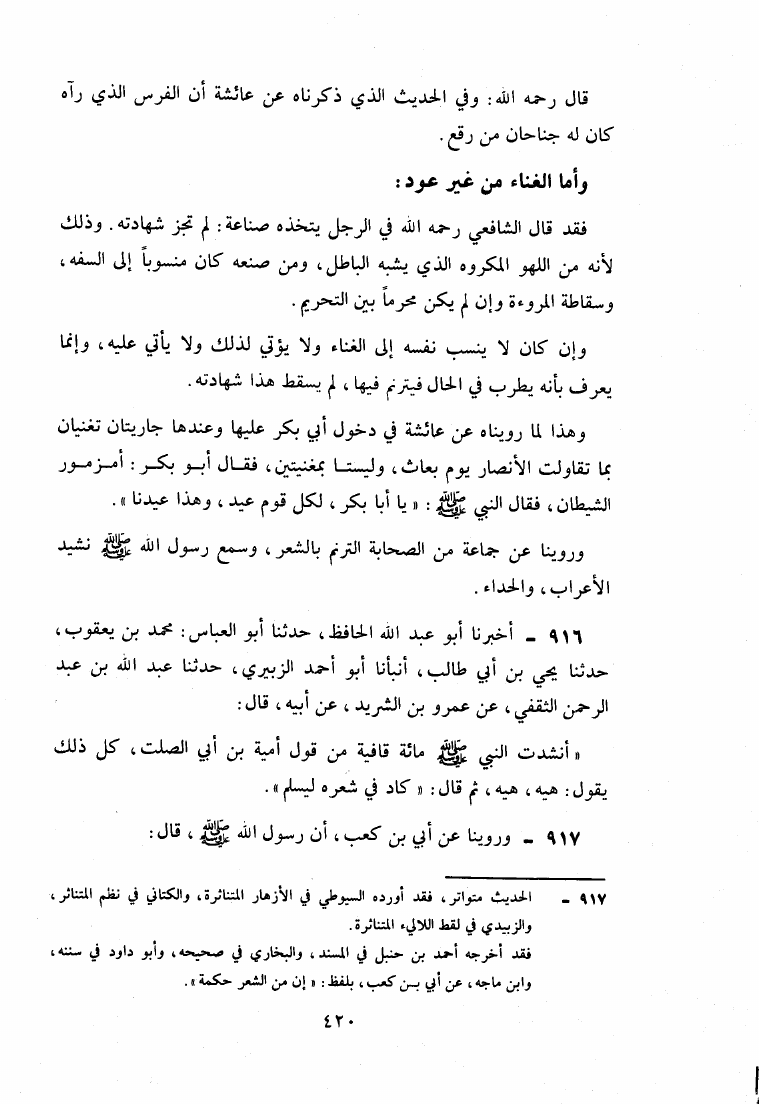 قال رحمه الله: وفي الحديث الذي ذكرناه عن عائشة أن الفرس الذي رآه
كان له جناحان من رقع.
وأما الغناء من غير عود:
فقد قال الشافعي رحمه الله في الرجل يتخذه صناعة: لم تجز شهادته. وذلك
لأنه من اللهو المكروه الذي يشبه الباطل، ومن صنعه كان منسوباً إلى السفه،
وسقاطة المروءة وإن لم يكن محرماً بين التحريم.
وإن كان لا ينسب نفسه إلى الغناء ولا يؤتي لذلك ولا يأتي عليه، وإنما
يعرف بأنه يطرب في الحال فيترنم فيها، لم يسقط هذا شهادته.
وهذا لما رويناه عن عائشة في دخول أبي بكر عليها وعندها جاريتان تغنيان
بما تقاولت الأنصار يوم بعاث، وليستا بمغنيتين، فقال أبو بكر: أمزمور
الشيطان، فقال النبي ﷺ: «يا أبا بكر، لكل قوم عيد، وهذا عيدنا».
وروينا عن جماعة من الصحابة الترنم بالشعر، وسمع رسول الله ﷺ نشيد
الأعراب، والحداء.
٩١٦ - أخبرنا أبو عبد الله الحافظ، حدثنا أبو العباس: محمد بن يعقوب،
حدثنا يحي بن أبي طالب، أنبأنا أبو أحمد الزبيري، حدثنا عبد الله بن عبد
الرحمن الثقفي، عن عمرو بن الشريد، عن أبيه، قال:
«أنشدت النبي ﷺ مائة قافية من قول أمية بن أبي الصلت، كل ذلك
يقول: هيه، هيه، ثم قال: «كاد في شعره ليسلم».
٩١٧ - وروينا عن أبي بن كعب، أن رسول الله ﷺ، قال:
٩١٧ - الحديث متواتر، فقد أورده السيوطي في الأزهار المتناثرة، والكتاني في نظم المتناثر،
والزبيدي في لقط اللاليء المتناثرة.
فقد أخرجه أحمد بن حنبل في المسند، والبخاري في صحيحه، وأبو داود في سننه،
وابن ماجه، عن أبي بن كعب، بلفظ: «إن من الشعر حكمة».
٤٢٠